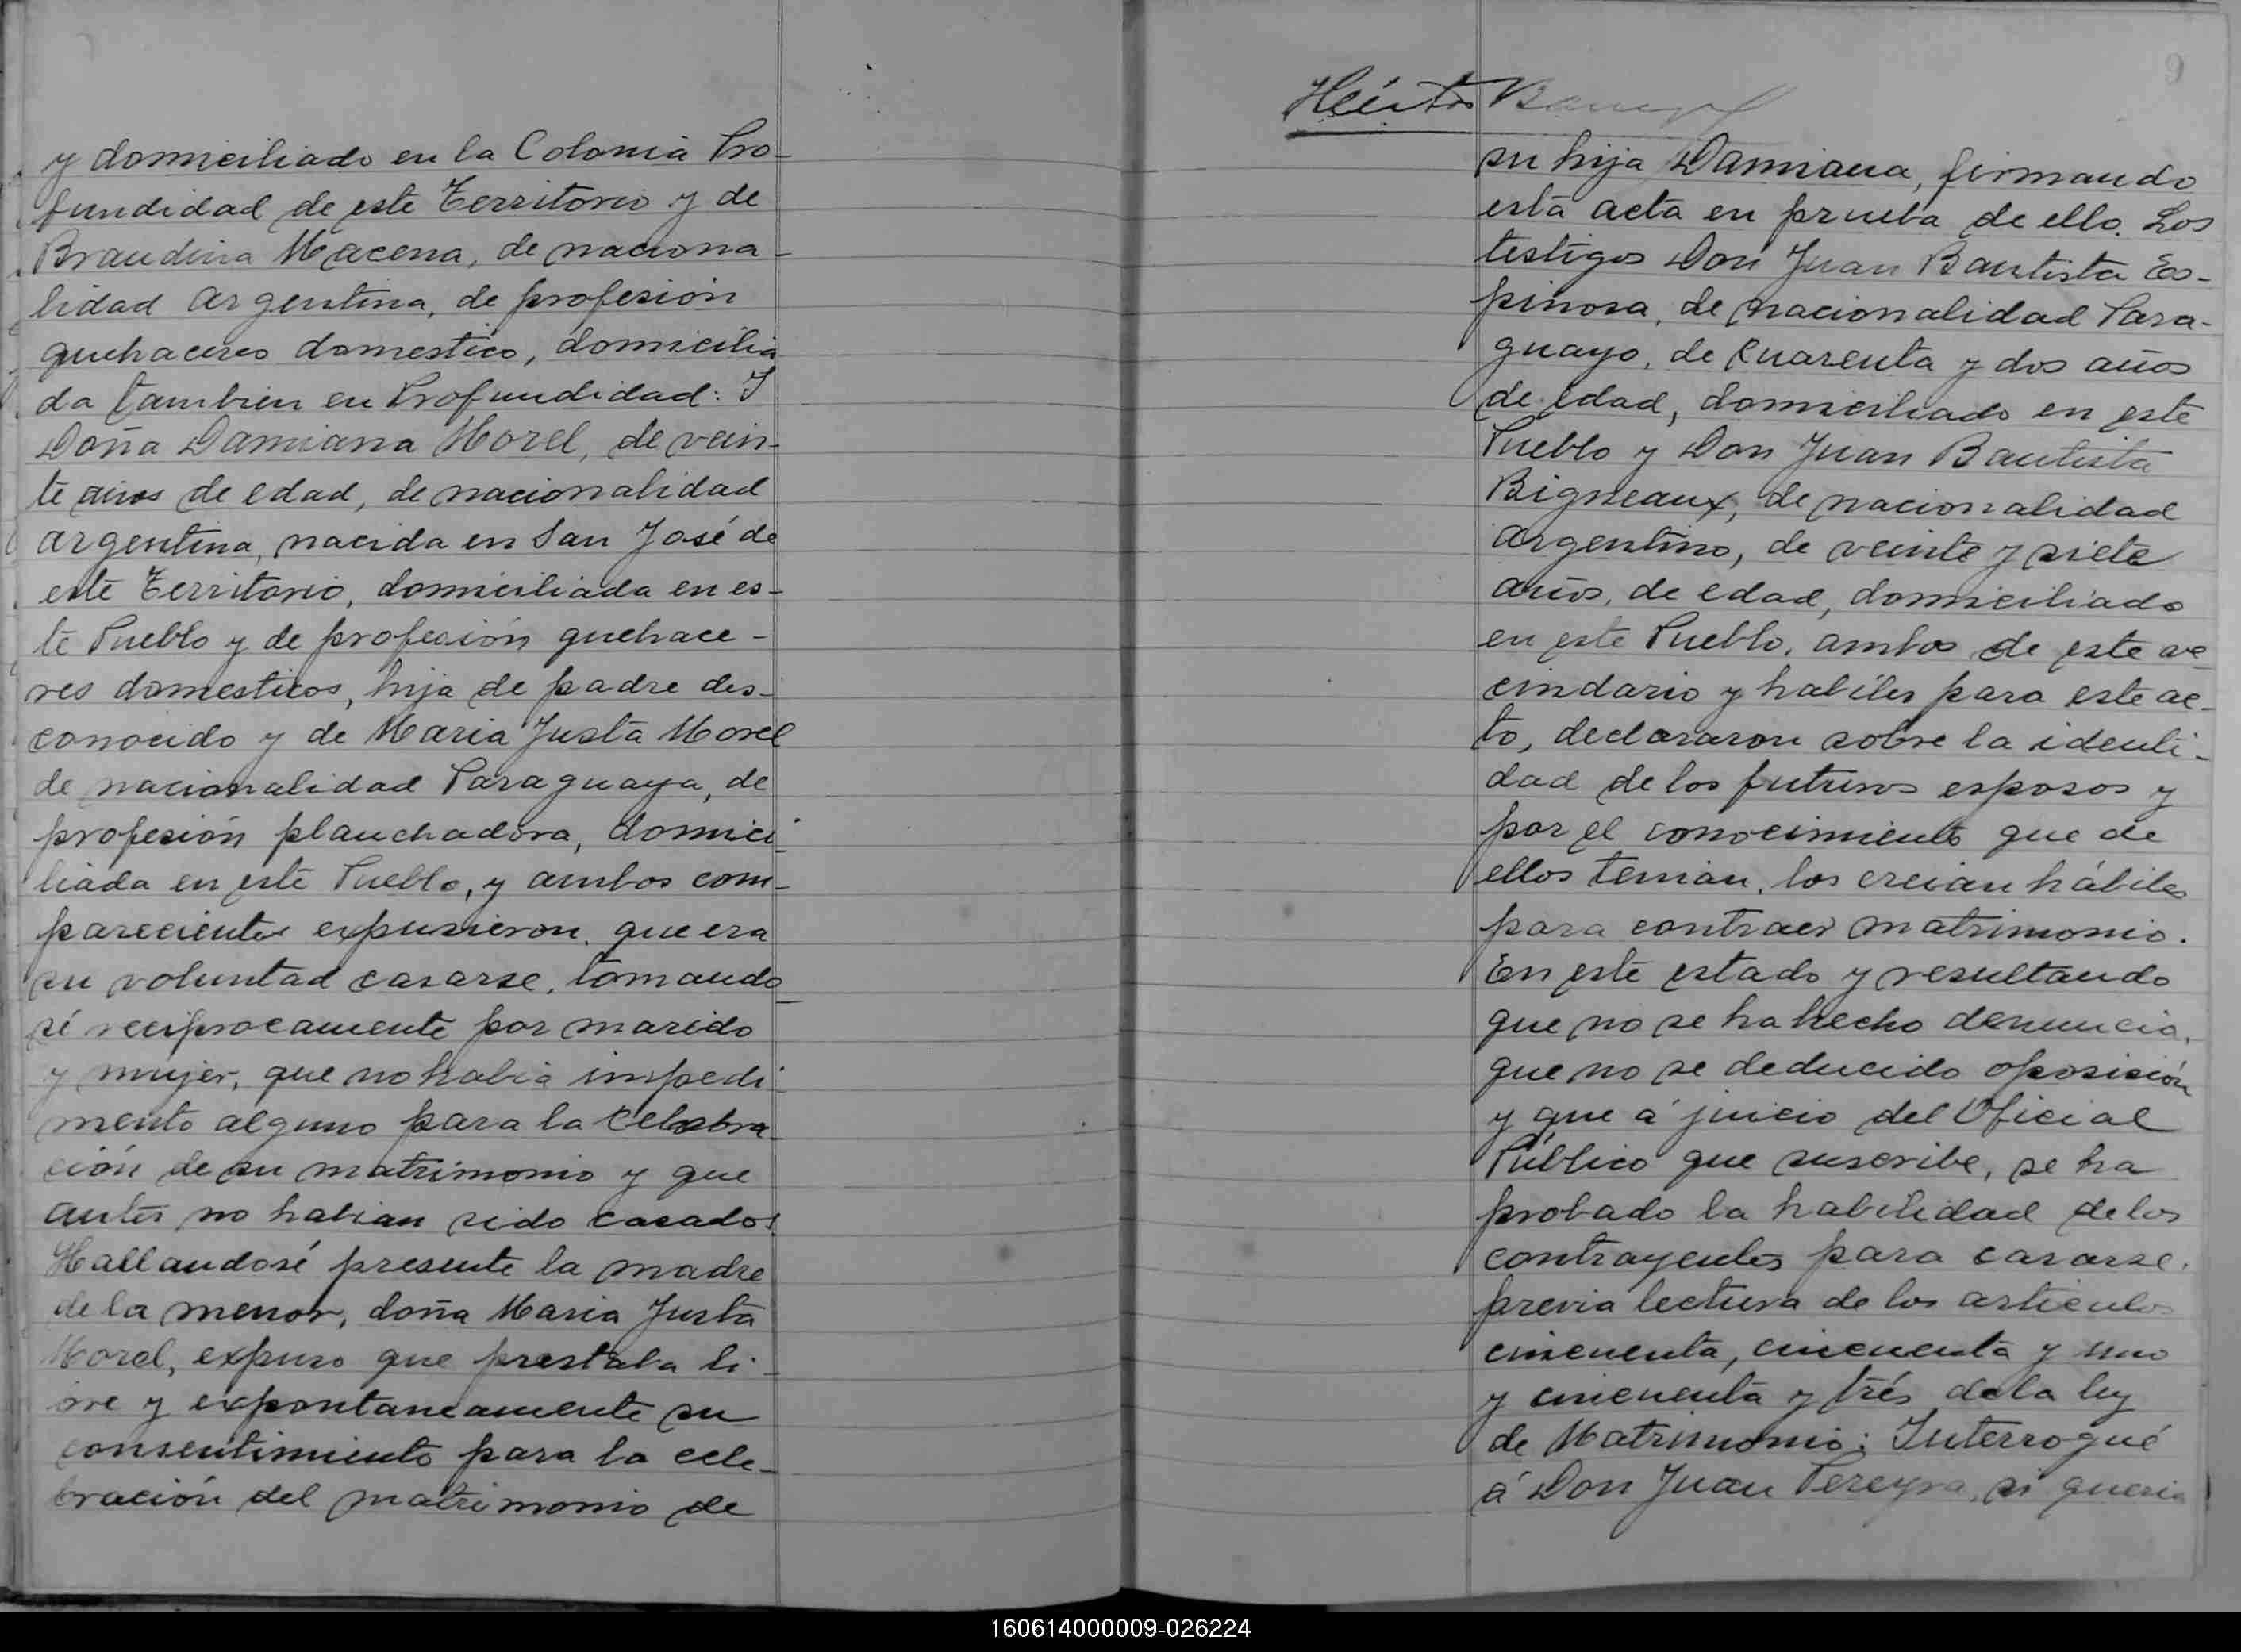 y domiciliado en la Colonia Pro-
fundidad de este Territorio y de
Braudina Macena, de naciona-
lidad argentina, de profesión
quehaceres domestico, domicilia
da tambien en Profundidad: Y
Doña Damiana Morel, de vein-
te años de edad, de nacionalidad
argentina, nacida en San José de
este Territorio, domiciliada en es-
te Pueblo y de profesión quehace-
res domesticos, hija de padre des-
conocido y de Maria Justa Morel
de nacionalidad Paraguaya, de
profesión planchadora, domici-
liada en este Pueblo, y ambos com-
parecientes expusieron, que era
su voluntad casarse, tomando
sé reciprocamente por marido
y mujer, que no habia impedi-
mento alguno para la Celebra-
ción de su matrimonio y que
antes no habian sido casados.
Hallandosé presente la madre
de la menor, doña Maria Justa
Morel, expuso que prestaba li-
bre y expontaneamente su
consentimiento para la cele-
bración del matrimonio de
9
Héctor
su hija Damiana, firmando
esta acta en prueba de ello. Los
testigos Don Juan Bautista Es-
pinosa, de nacionalidad Para-
guayo, de cuarenta y dos años
de edad, domiciliado en este
Pueblo y Don Juan Bautista
Bigneaux, de nacionalidad
argentino, de veinte y siete
años, de edad, domiciliado
en este Pueblo, ambos de este ve
cindario y habiles para este ac-
to, declararon sobre la identi-
dad de los futuros esposos y
por el conocimiento que de
ellos tenian, los creian hábiles
para contraer matrimonio.
En este estado y resultando
que no se ha hecho denuncia,
que no se deducido oposición
y que á juicio del Oficial
Público que suscribe, se ha
probado la habilidad de los
contrayentes para casarse,
previa lectura de los articulos
cincuenta, cincuenta y uno
y cincuenta y trés de la ley
de Matrimonio; Interrogué
á Don Juan Pereyra, si queria
160614000009-026224